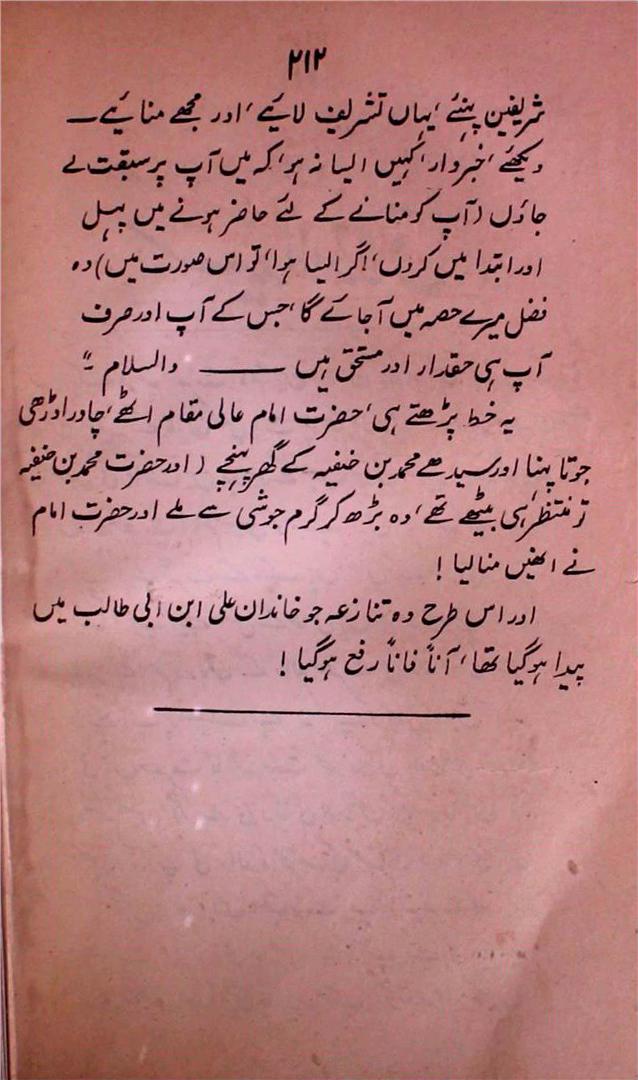 ۲۱۲
شریفین پہنئے ، یہاں تشریف لائیے ، اور مجھے منائیے ــ
دیکھئے ، خبردار ، کہیں ایسا نہ ہو ، کہ میں آپ پر سبقت لے
جاؤں (آپ کو منانے کے لئے حاضر ہونے میں پہل
اور ابتدا میں کردوں ، اگر ایسا ہوا ، تو اس صورت میں) وہ
فضل میرے حصہ میں آجائے گا ، جس کے آپ اور صرف
آپ ہی حقدار اور مستحق ہیں ــــــــ والسلام ۔"
یہ خط پڑھتے ہی ، حضرت امام عالی مقام اٹھے ، چادر اوڑھی
جوتا پہنا اور سیدھے محمد بن حنفیہ کے گھر پہنچے (اور حضرت محمد بن حنفیہ
تو منتظر ہی بیٹھے تھے ، وہ بڑھ کر گرم جوشی سے ملے اور حضرت امام
نے انھیں منا لیا !
اور اس طرح وہ تنازعہ جو خاندان علی ابن ابی طالب میں
پیدا ہوگیا تھا ، آناً فاناً رفع ہوگیا !